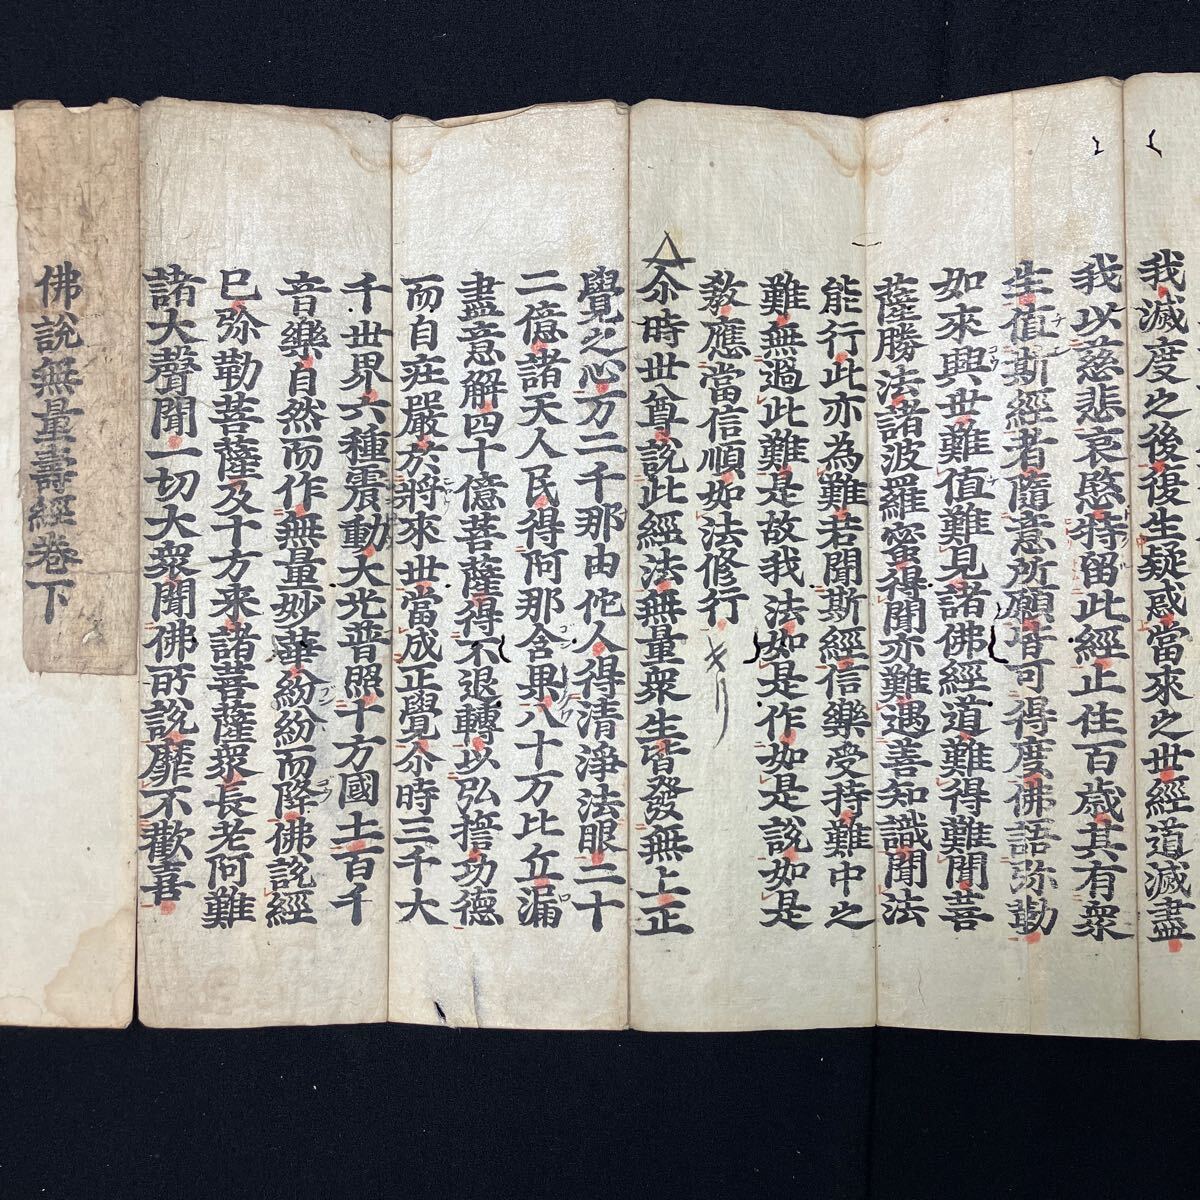 我滅度之後復生疑惑當來之世經道滅盡
我以慈悲哀愍特留此經止住百歲其有衆
生值斯經者隨意所願皆可得度佛語弥勒
如來興世難值難見諸佛經道難得難聞菩
薩勝法諸波羅蜜得聞亦難遇善知識聞法
能行此亦為難若聞斯經信樂受持難中之
難無過此難是故我法如是作如是說如是
教應當信順如法修行
キリ
尒時世尊說此經法無量衆生皆發無上正
覺之心万二千那由佗人得清淨法眼二十
二億諸天人民得阿那含果八十万比丘漏
盡意解四十億菩薩得不退轉以弘誓功德
而自庄嚴於將來世當成正覺尒時三千大
千世界六種震動大光普照十方國土百千
音樂自然而作無量妙華紛紛而降佛說經
已弥勒菩薩及十方来諸菩薩衆長老阿難
諸大聲聞一切大衆聞佛所說靡不歡喜
佛說無量壽經卷下